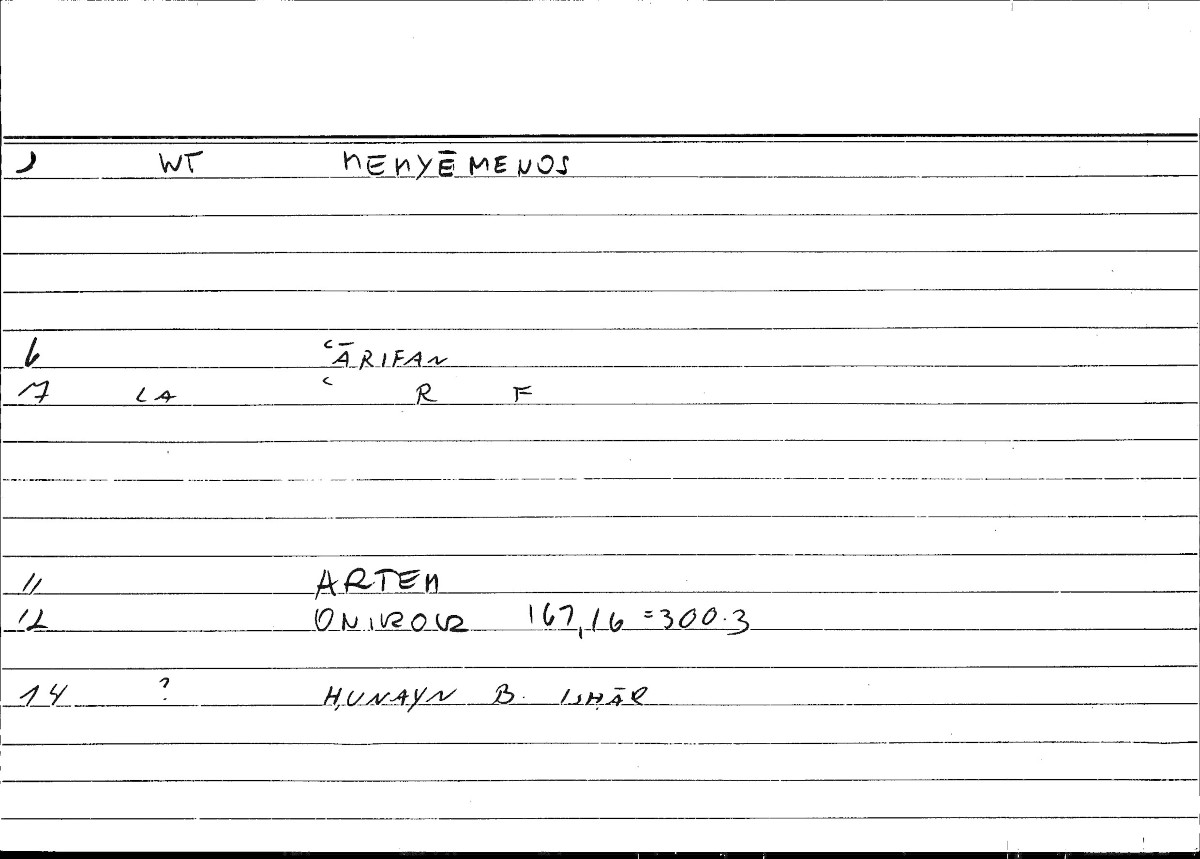 1 WT MEMYĒMENOS
6 ʿĀRIFAN
7 LA ʿ R F
11 ARTEM
12 ONIROCR 167,16 =300.3
14 ? ḤUNAYN B. ISḤĀQ